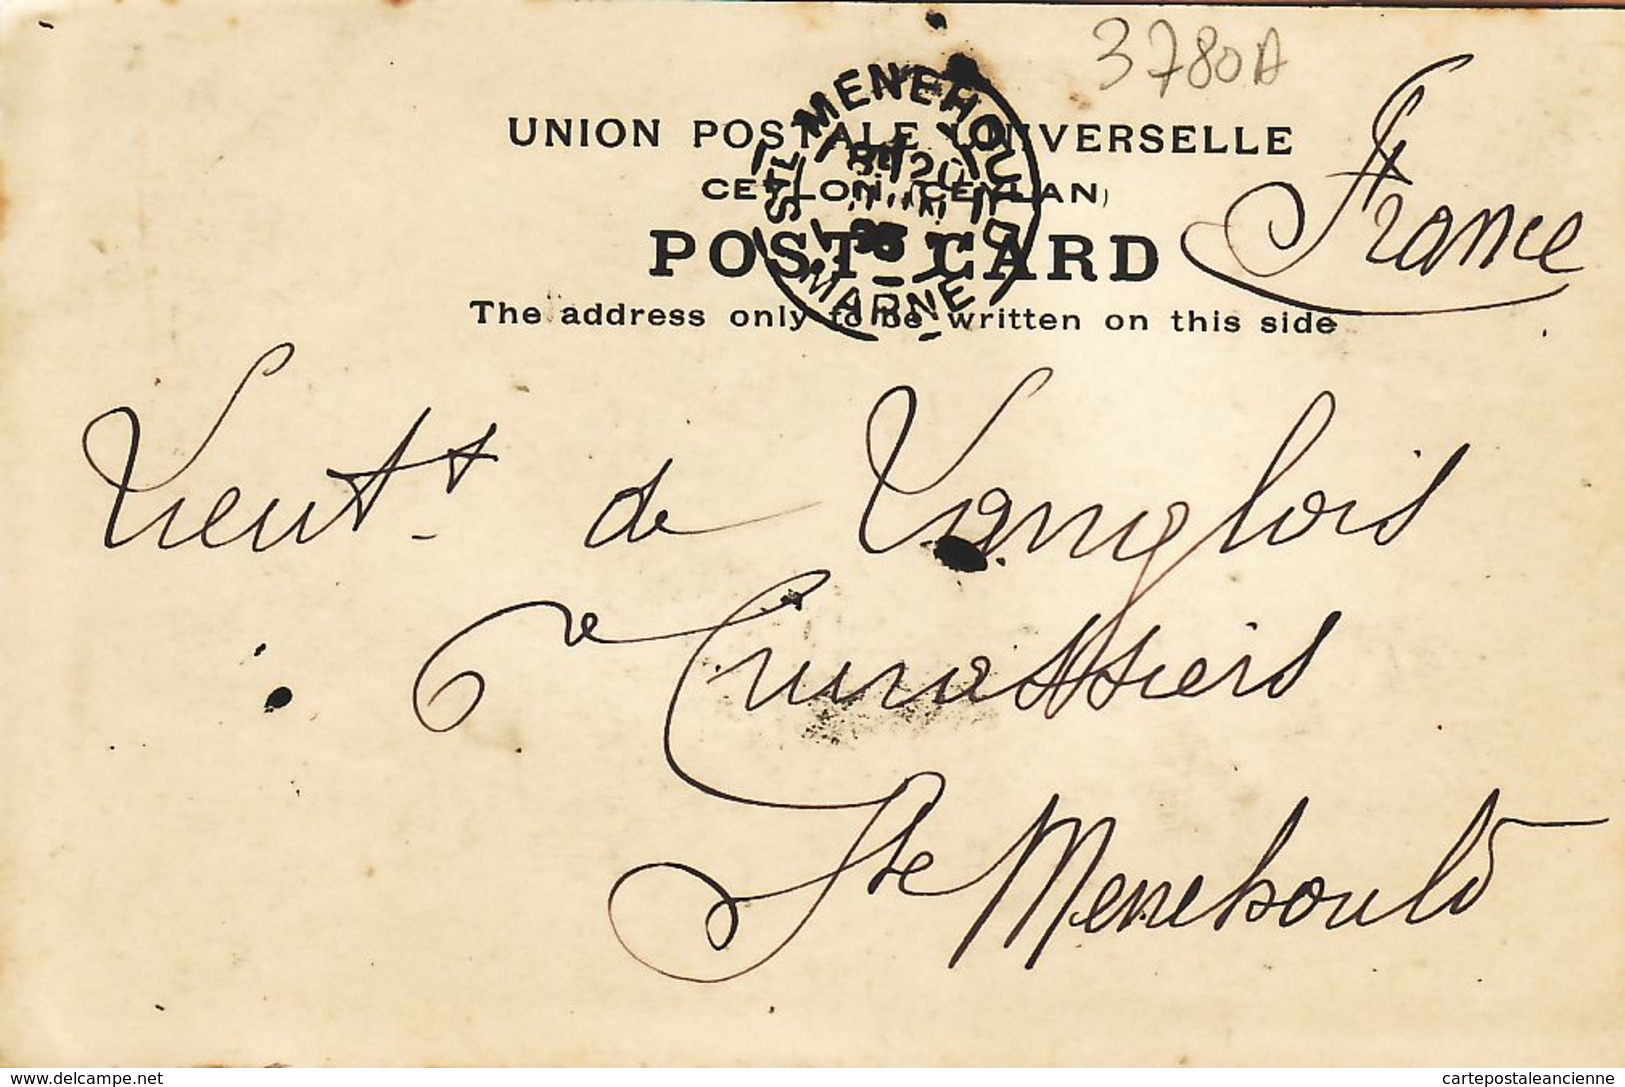 3780A
UNION POSTALE UNIVERSELLE
CEYLON (CEYLAN)
POST CARD
The address only to be written on this side
France
STE MENEHOULD
MARNE
Lieutt. de Langlois
6e Cuirassiers
Ste Menehould
www.delcampe.net
cartepostaleancienne